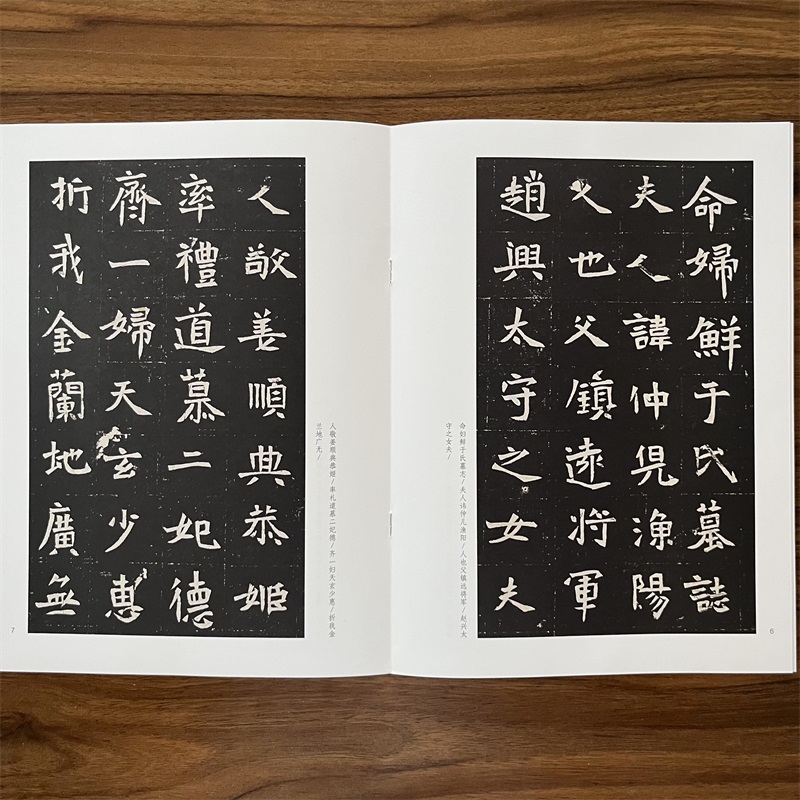 命婦鮮于氏墓誌
夫人諱仲兒漁陽
人也父鎮遠将軍
趙興太守之女夫
命妇鲜于氏墓志/夫人讳仲儿渔阳/人也父镇远将军/赵兴太
守之女夫/
6
人敬姜順典恭姬
率禮道慕二妃德
齊一婦天玄少惠
折我金蘭地廣無
人敬姜顺典恭姬/率礼道慕二妃德/齐一妇天玄少惠/折我金
兰地广无/
7